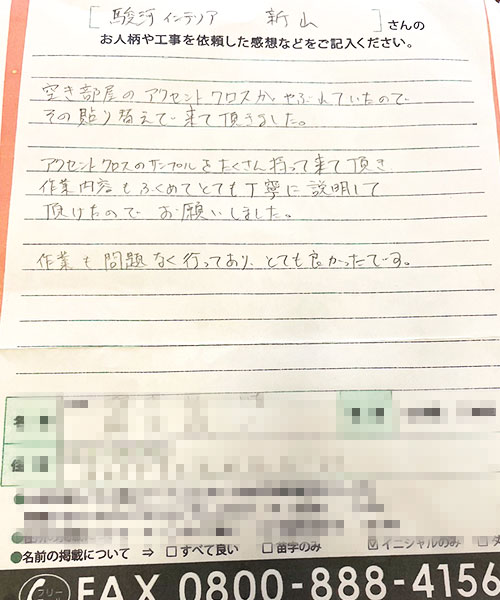 [ 駿河インテリア 新山 ]さんの
お人柄や工事を依頼した感想などをご記入ください。
空き部屋のアクセントクロスがやぶれていたので
その貼り替えで来て頂きました。
アクセントクロスのサンプルをたくさん持って来て頂き
作業内容もふくめてとても丁寧に説明して
頂けたのでお願いしました。
作業も問題なく行っており、とても良かったです。
●名前の掲載について ⇒ □すべて良い □苗字のみ ☑イニシャルのみ
フリー
FAX 0800-888-4156